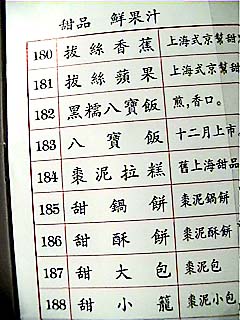 甜品 鮮果汁
180 拔絲香蕉 上海式京幫甜
181 拔絲蘋果 上海式京幫甜
182 黑糯八寶飯 煎，香口。
183 八寶飯 十二月上市
184 棗泥拉糕 舊上海甜品
185 甜鍋餅 棗泥鍋餅
186 甜酥餅 棗泥酥餅
187 甜大包 棗泥包
188 甜小籠 棗泥小包